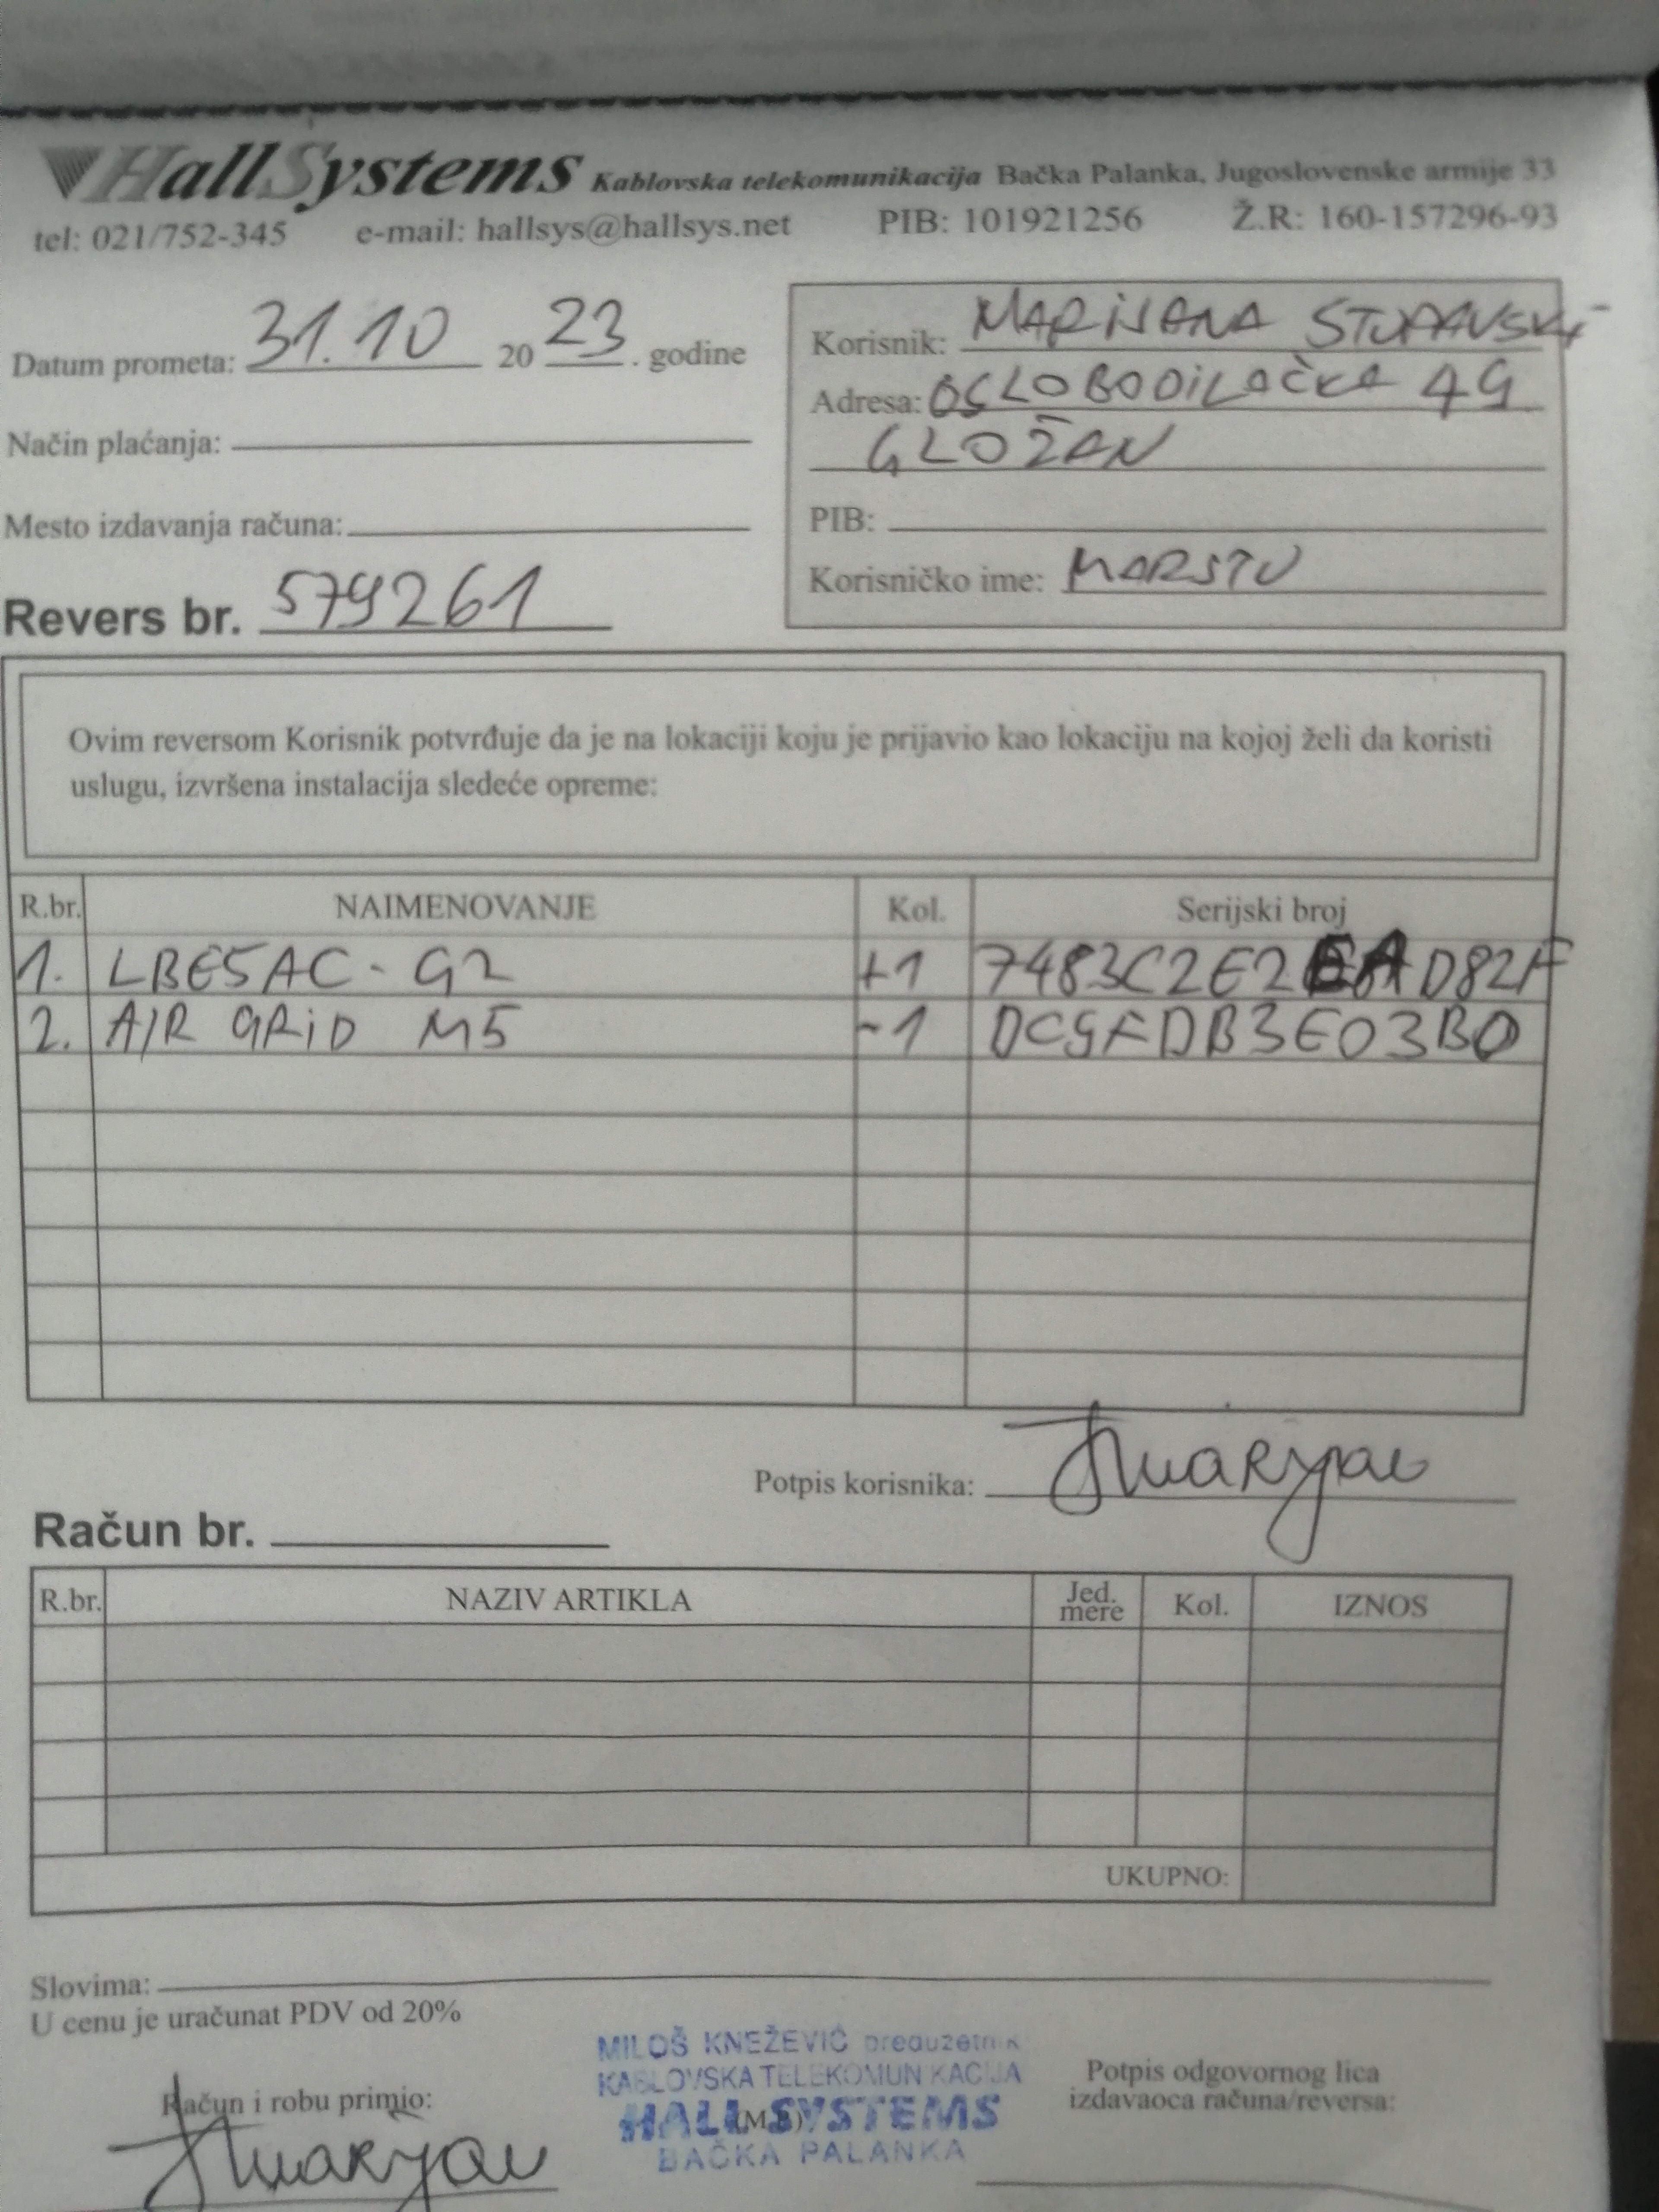 HallSystems Kablovska telekomunikacija Bačka Palanka, Jugoslovenske armije 33
tel: 021/752-345 e-mail: hallsys@hallsys.net PIB: 101921256 Ž.R: 160-157296-93
Datum prometa: 31.10 2023. godine
Način plaćanja:
Mesto izdavanja računa:
Revers br. 579261
Korisnik: MARIJANA STUPAVSKI
Adresa: OSLOBODILAČKA 49
GLOŽAN
PIB:
Korisničko ime: MARSTU
Ovim reversom Korisnik potvrđuje da je na lokaciji koju je prijavio kao lokaciju na kojoj želi da koristi
uslugu, izvršena instalacija sledeće opreme:
R.br. NAIMENOVANJE Kol. Serijski broj
1. LBE5AC-G2 +1
2. AIR GRID M5 -1 DC9FDB3E03B0
Potpis korisnika:
Račun br.
R.br. NAZIV ARTIKLA Jed. mere Kol. IZNOS
UKUPNO:
Slovima:
U cenu je uračunat PDV od 20%
Račun i robu primio:
MILOŠ KNEŽEVIĆ preduzetnik
KABLOVSKA TELEKOMUNIKACIJA
HALL SYSTEMS
BAČKA PALANKA
(M.P.)
Potpis odgovornog lica
izdavaoca računa/reversa: